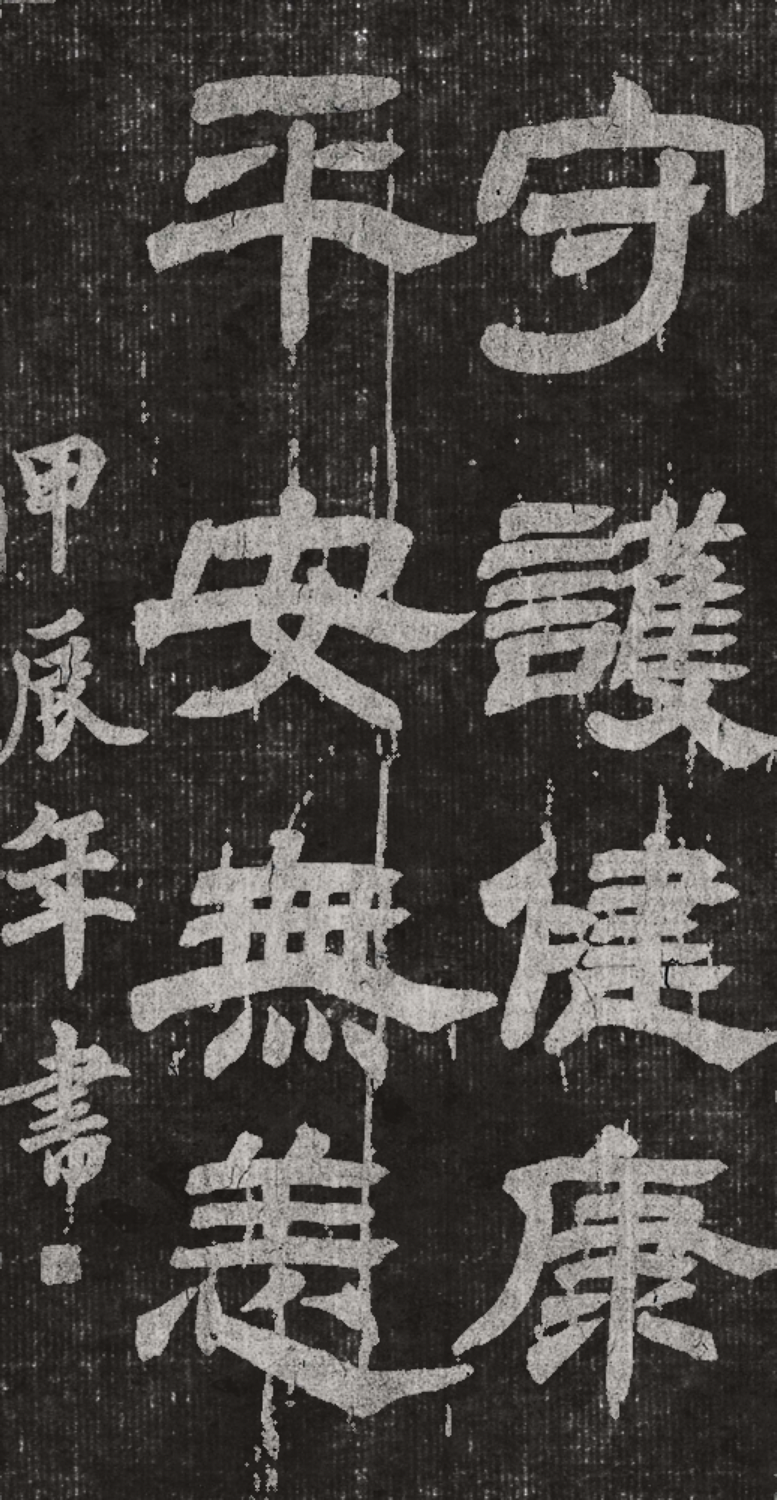 守護健康
平安無恙
甲辰年書